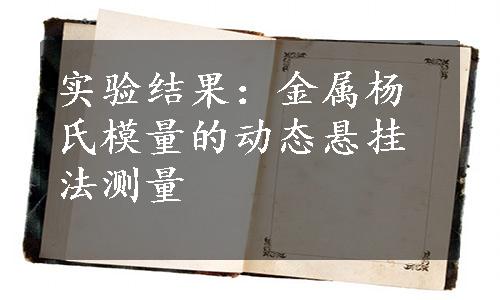 实验结果：金属杨
氏模量的动态悬挂
法测量